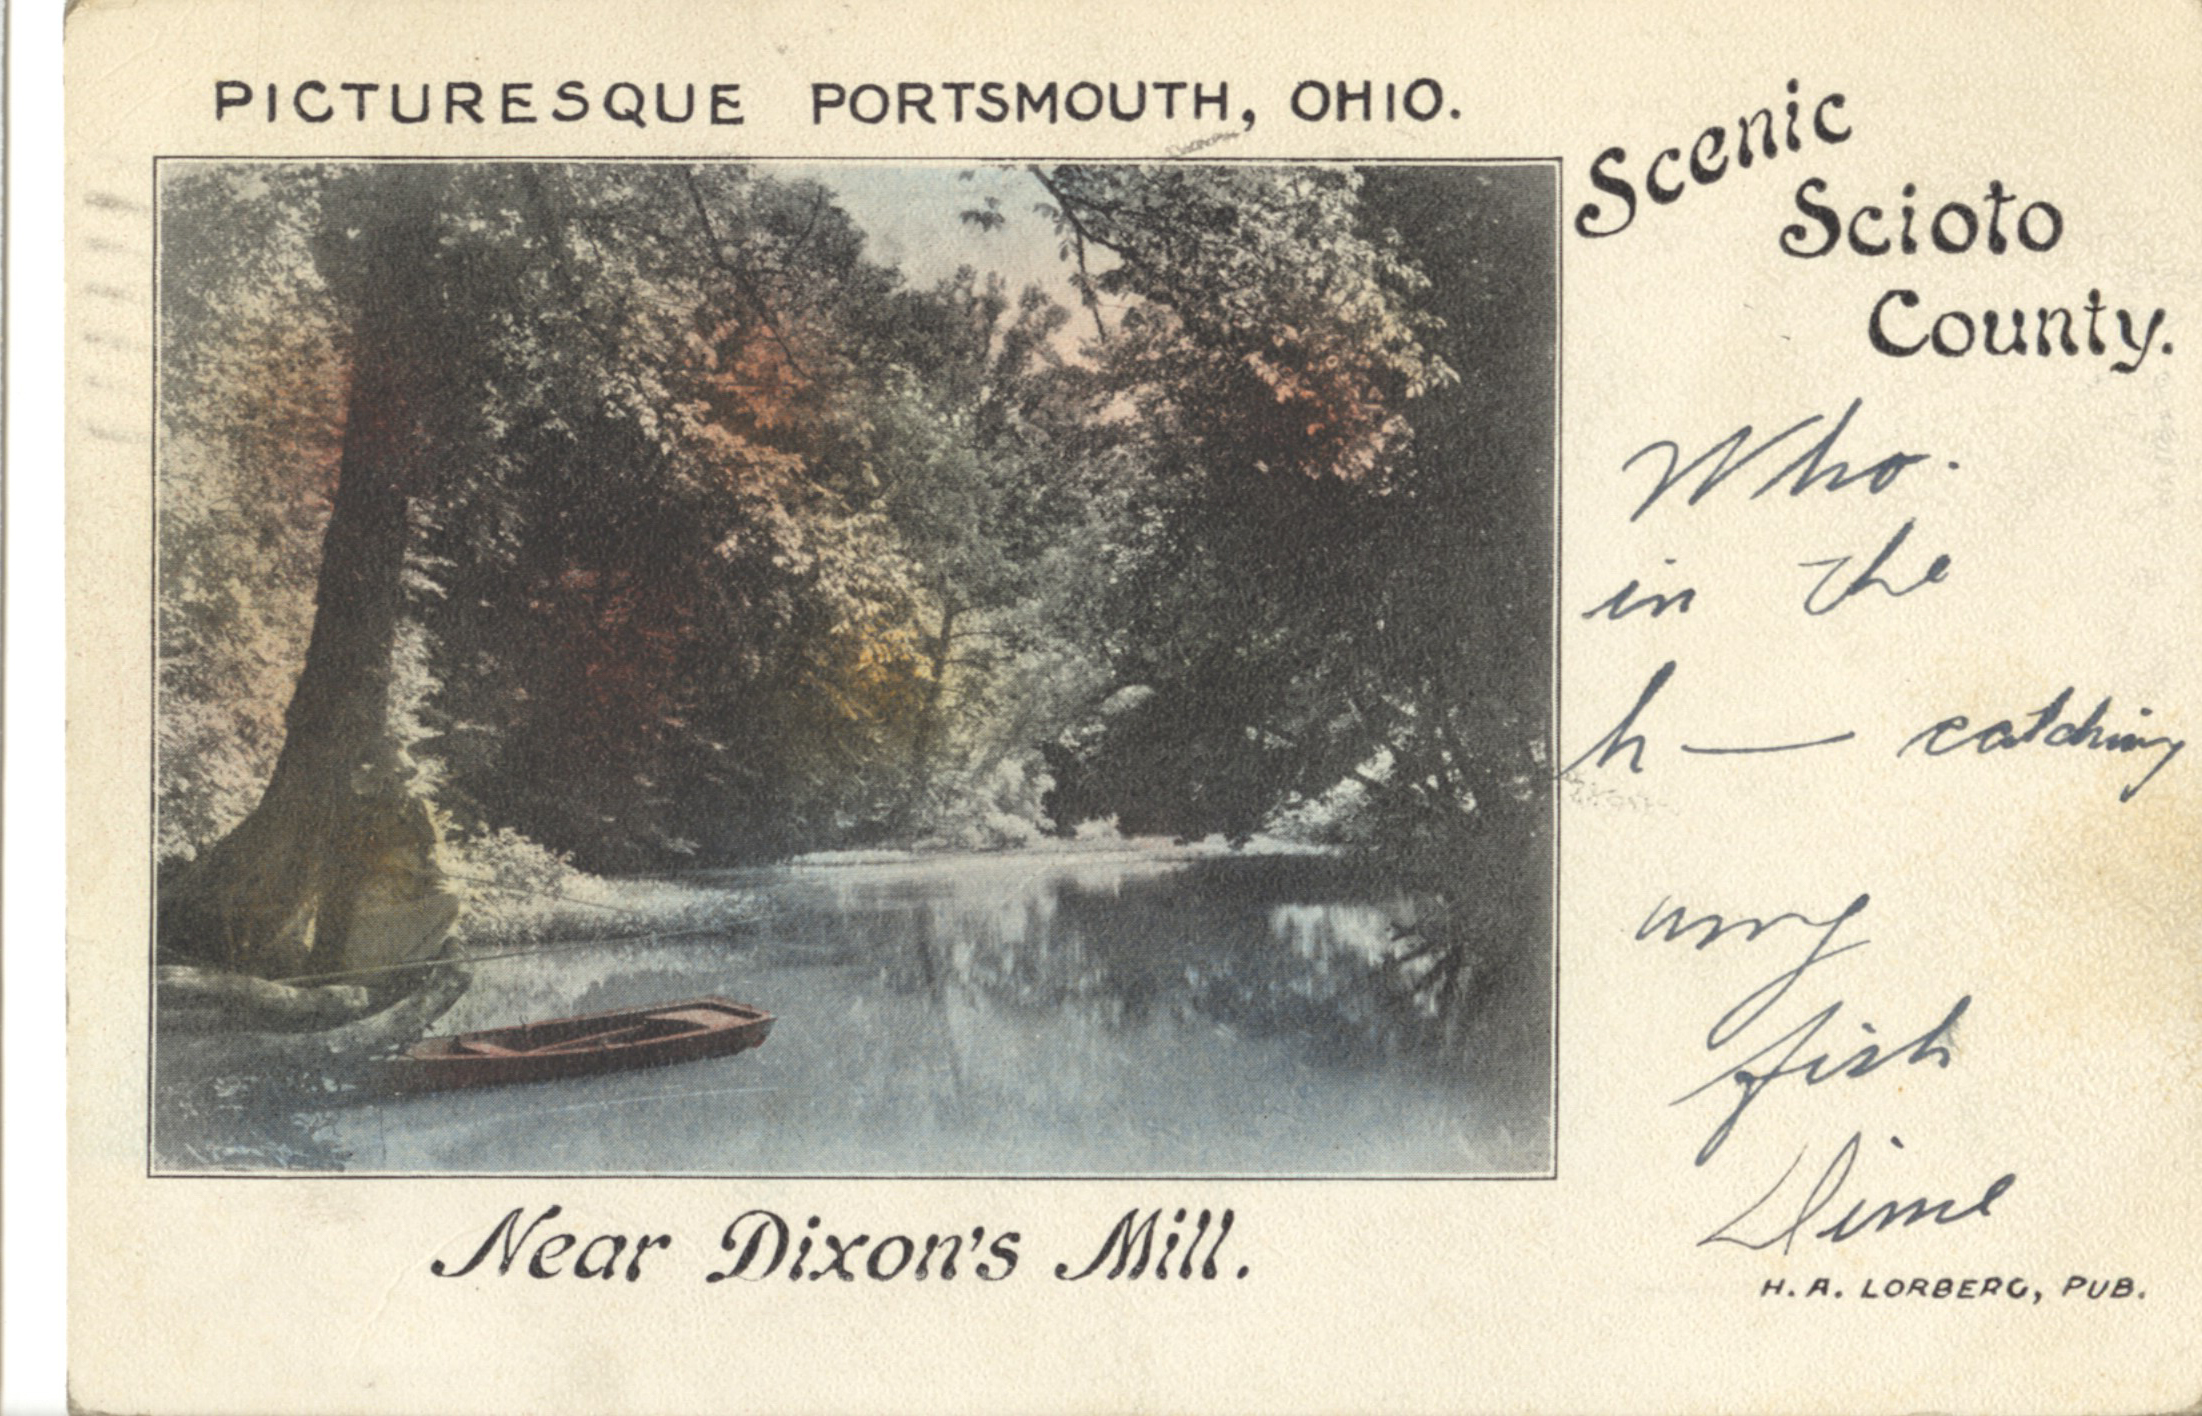 PICTURESQUE PORTSMOUTH, OHIO.
Scenic
Scioto
County.
Who.
in the
h — catching
any
fish
Near Dixon's Mill.
H. A. LORBERG, PUB.